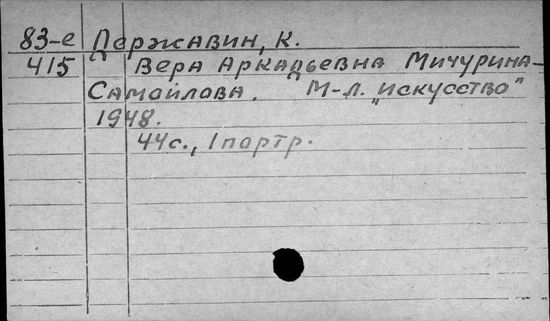 83-е Державин, К.
415 Вера Аркадьевна Мичурина-
Самойлова. М-Л. "Искусство"
1948.
44с., 1 портр.